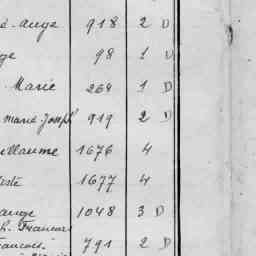 é-Ange 918 2 D
ge 98 1 D
Marie 264 1 D
marie-Joseph 919 2 D
uillaume 1676 4
iste 1677 4
ange 1048 3 D
h. Francois
rancois. 791 2 D